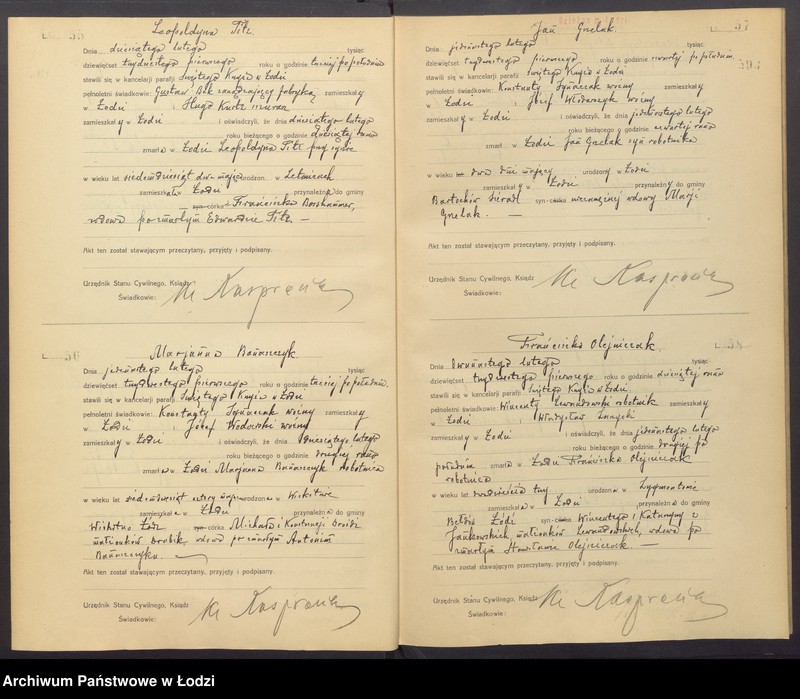 L. 55
Leopoldyna Titz.
Dnia dziesiątego lutego tysiąc
dziewięćset trzydziestego pierwszego roku o godzinie trzeciej po południu
stawili się w kancelarji parafji Świętego Krzyża w Łodzi
pełnoletni świadkowie: Gustaw Bek zarządzający fabryką zamieszkały
w Łodzi i Hugo
zamieszkały w Łodzi i oświadczyli, że dnia dziesiątego lutego
roku bieżącego o godzinie dziesiątej rano
zmarła w Łodzi Leopoldyna Titz przy
w wieku lat siedemdziesiąt dwa mająca urodzon. w
zamieszkała w Łodzi przynależna do gminy
syn-córka Franciszka
wdowa po zmarłym Edwardzie Titz. —
Akt ten został stawającym przeczytany, przyjęty i podpisany.
Urzędnik Stanu Cywilnego, Ksiądz Kasprzak
Świadkowie:
L. 56
Marjanna Banaszczyk
Dnia jedenastego lutego tysiąc
dziewięćset trzydziestego pierwszego roku o godzinie trzeciej po południu
stawili się w kancelarji parafji Świętego Krzyża w Łodzi
pełnoletni świadkowie: Konstanty Ignaczak woźny zamieszkały
w Łodzi i Józef woźny
zamieszkały w Łodzi i oświadczyli, że dnia dziesiątego lutego
roku bieżącego o godzinie drugiej rano
zmarła w Łodzi Marjanna Banaszczyk robotnica
w wieku lat siedemdziesiąt cztery mająca urodzona w
zamieszkała w Łodzi przynależna do gminy
Łódź syn-córka Michała i Konstancji
małżonków wdowa po zmarłym Antonim
Banaszczyku.
Akt ten został stawającym przeczytany, przyjęty i podpisany.
Urzędnik Stanu Cywilnego, Ksiądz Kasprzak
Świadkowie:
L. 57
Jan Grelak.
Dnia jedenastego lutego tysiąc
dziewięćset trzydziestego pierwszego roku o godzinie czwartej po południu
stawili się w kancelarji parafji Świętego Krzyża w Łodzi
pełnoletni świadkowie: Konstanty Ignaczak woźny zamieszkały
w Łodzi i Józef Włodarczyk woźny
zamieszkały w Łodzi i oświadczyli, że dnia jedenastego lutego
roku bieżącego o godzinie czwartej rano
zmarł w Łodzi Jan Grelak syn robotnika
w wieku dwa dni mający urodzony w Łodzi
zamieszkały w Łodzi przynależny do gminy
Bartochów Sieradz syn-córka niezamężnej wdowy Marji
Grelak. —
Akt ten został stawającym przeczytany, przyjęty i podpisany.
Urzędnik Stanu Cywilnego, Ksiądz Kasprzak
Świadkowie:
L. 58
Franciszka Olejniczak.
Dnia dwunastego lutego tysiąc
dziewięćset trzydziestego pierwszego roku o godzinie dziesiątej rano
stawili się w kancelarji parafji Świętego Krzyża w Łodzi
pełnoletni świadkowie: Wincenty Lewandowski robotnik zamieszkały
w Łodzi i Władysław
zamieszkały w Łodzi i oświadczyli, że dnia jedenastego lutego
roku bieżącego o godzinie drugiej po
południu zmarła w Łodzi Franciszka Olejniczak
robotnica
w wieku lat dwadzieścia trzy urodzona w Zygmuntowie
zamieszkała w Łodzi przynależna do gminy
Łódź syn-córka Wincentego i Katarzyny z
Jankowskich, małżonków Lewandowskich, wdowa po
zmarłym Stanisławie Olejniczak. —
Akt ten został stawającym przeczytany, przyjęty i podpisany.
Urzędnik Stanu Cywilnego, Ksiądz Kasprzak
Świadkowie:
Archiwum Państwowe w Łodzi